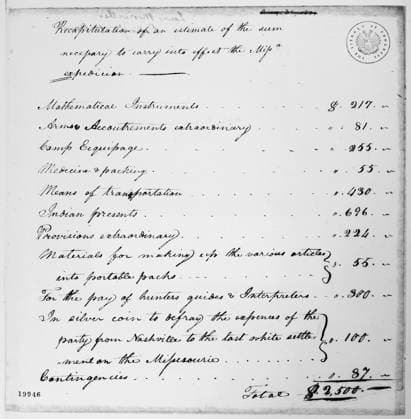 Recapitulation of an estimate of the sum
necessary to carry into effect the Miss.ie
expedicion
Mathematical Instruments $. 217. —
Arms & Accoutrements extraordinary ". 81. —
Camp Ecquipage ". 255. —
Medecine & packing ". 55. —
Means of transportation ". 430. —
Indian presents ". 696. —
Provisions extraordinary ". 224. —
Materials for making up the various articles
into portable packs ". 55. —
For the pay of hunters guides & Interpreters ". 300. —
In silver coin to defray the expences of the
party from Nashville to the last white settle-
ment on the Missourie ". 100. —
Contingencies ". 87. —
Total $ 2,500. —
19946